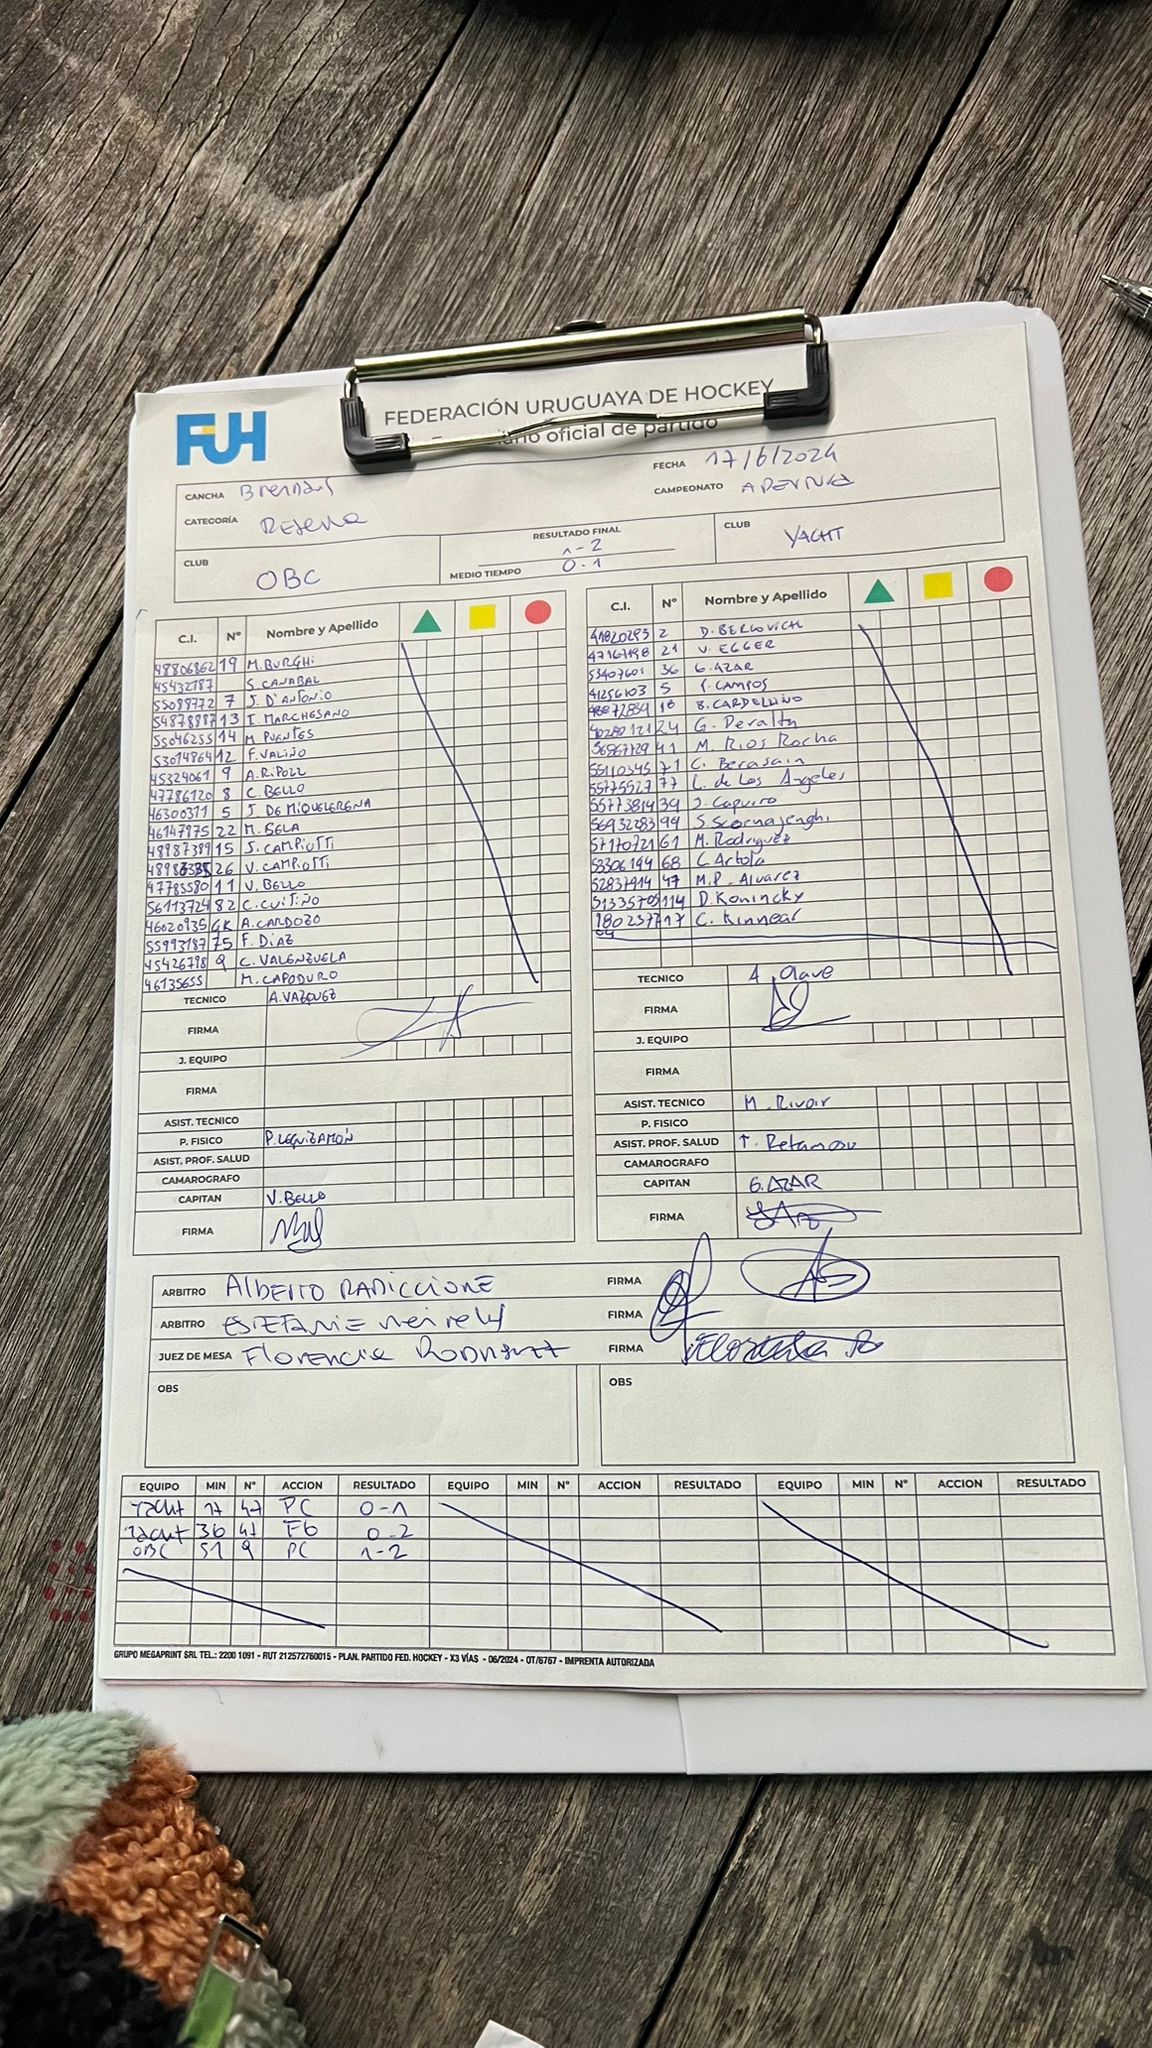 FUH
FEDERACIÓN URUGUAYA DE HOCKEY
oficial de partido
CANCHA FECHA 17/6/2024
CATEGORÍA Reserva CAMPEONATO
CLUB OBC RESULTADO FINAL 1-2 CLUB YACHT
MEDIO TIEMPO 0-1
C.I. Nº Nombre y Apellido
48806862 19 M. BURGHI
45432187 S. CANABAL
55088772 7 J. D'ANTONIO
54878887 13 I. MARCHESANO
55046255 14 M PUENTES
53014864 12 F. VALIÑO
45324061 9 A. RIPOLL
47786120 8 C. BELLO
46300311 5 J. DE MIQUELERENA
46147975 22 M. SELA
48987389 15 J. CAMPIOTTI
26 V. CAMPIOTTI
47785580 11 V. BELLO
56113724 82 C. CUITIÑO
46020935 GK A. CARDOZO
55993187 75 F. DIAZ
45426798 9 C. VALENZUELA
46135655 M. CAPODURO
TECNICO A. VAZQUEZ
FIRMA
J. EQUIPO
FIRMA
ASIST. TECNICO
P. FISICO P. LEGUIZAMÓN
ASIST. PROF. SALUD
CAMAROGRAFO
CAPITAN V. BELLO
FIRMA
C.I. Nº Nombre y Apellido
41820293 2 D. BERCOVICH
47167198 21 V. EGGER
53407601 36 G. AZAR
41256103 5 CAMPOS
48072839 18 B. CARDELLINO
40280121 24 G. Peralta
56967729 41 M. Rios Rocha
55110345 71 C. Berasain
55775527 77 L. de Los Angeles
55773814 39 J. Capurro
56932283 99 S. Scornajenghi
57170721 61 M. Rodriguez
53306194 68 C. Artola
52837914 47 M.P. Alvarez
51335705 114 D. Konincky
17 C. Kinnear
TECNICO A. Olave
FIRMA
J. EQUIPO
FIRMA
ASIST. TECNICO M. Rivoir
P. FISICO
ASIST. PROF. SALUD T. Retamoso
CAMAROGRAFO
CAPITAN G. AZAR
FIRMA
ARBITRO Alberto RADICCIONE FIRMA
ARBITRO ESTEFANIE FIRMA
JUEZ DE MESA Florencia Rodriguez FIRMA
OBS OBS
EQUIPO MIN Nº ACCION RESULTADO EQUIPO MIN Nº ACCION RESULTADO EQUIPO MIN Nº ACCION RESULTADO
Yacht 17 47 PC 0-1
Yacht 36 41 FG 0-2
OBC 51 9 PC 1-2
GRUPO MEGAPRINT SRL TEL.: 2200 1091 - RUT 212572760015 - PLAN. PARTIDO FED. HOCKEY - X3 VÍAS - 06/2024 - OT/6767 - IMPRENTA AUTORIZADA